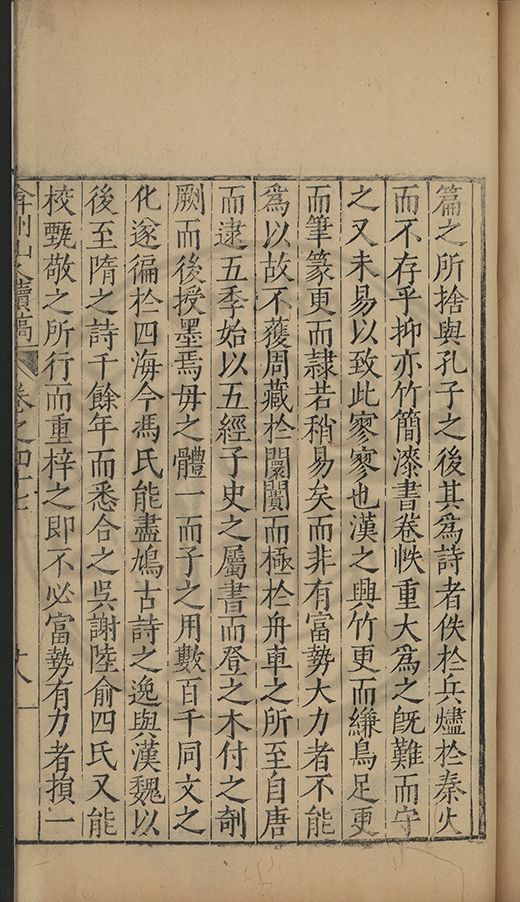 篇之所捨與孔子之後其為詩者佚於兵燼於秦火
而不存乎抑亦竹簡漆書卷帙重大為之旣難而守
之又未易以致此寥寥也漢之興竹更而縑鳥足更
而筆篆更而隸若稍易矣而非有富勢大力者不能
為以故不獲周藏於闤闠而極於舟車之所至自唐
而逮五季始以五經子史之屬書而登之木付之剞
劂而後授墨焉毋之體一而子之用數百千同文之
化遂徧於四海今馮氏能盡鳩古詩之逸與漢魏以
後至隋之詩千餘年而悉合之吳謝陸俞四氏又能
校甄敬之所行而重梓之即不必富勢有力者損一
弇州山人續稿 卷之四十七